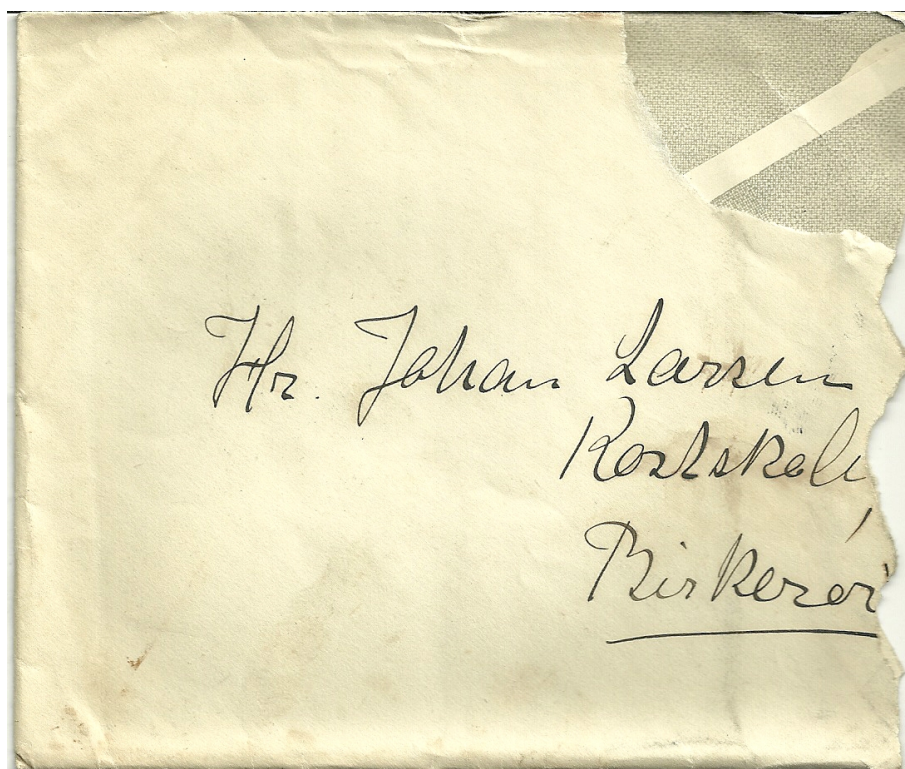 Hr. Johan Larsen
Kostskole
Birkerø